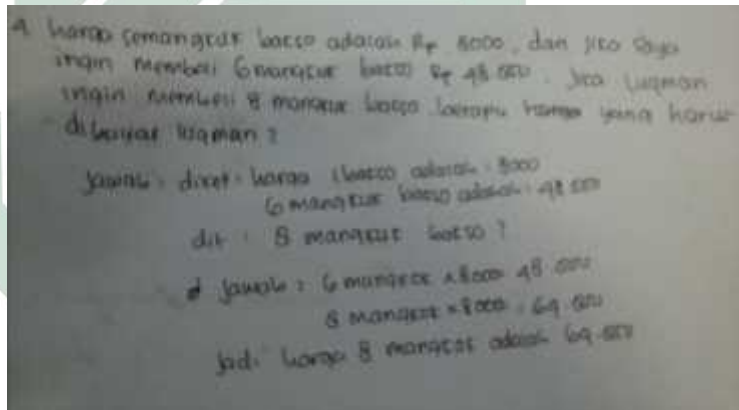 4. harga semangkuk bakso adalah Rp 8000, dan jika saya
ingin membeli 6 mangkuk bakso Rp 48.000. Jika Luqman
ingin membeli 8 mangkuk bakso berapa harga yang harus
dibayar luqman?
Jawab: diket: harga 1 bakso adalah = 8000
6 mangkuk bakso adalah = 48.000
dit : 8 mangkuk bakso?
jawab : 6 mangkok x 8000 48.000
8 mangkok x 8000 = 64.000
jadi harga 8 mangkok adalah 64.000